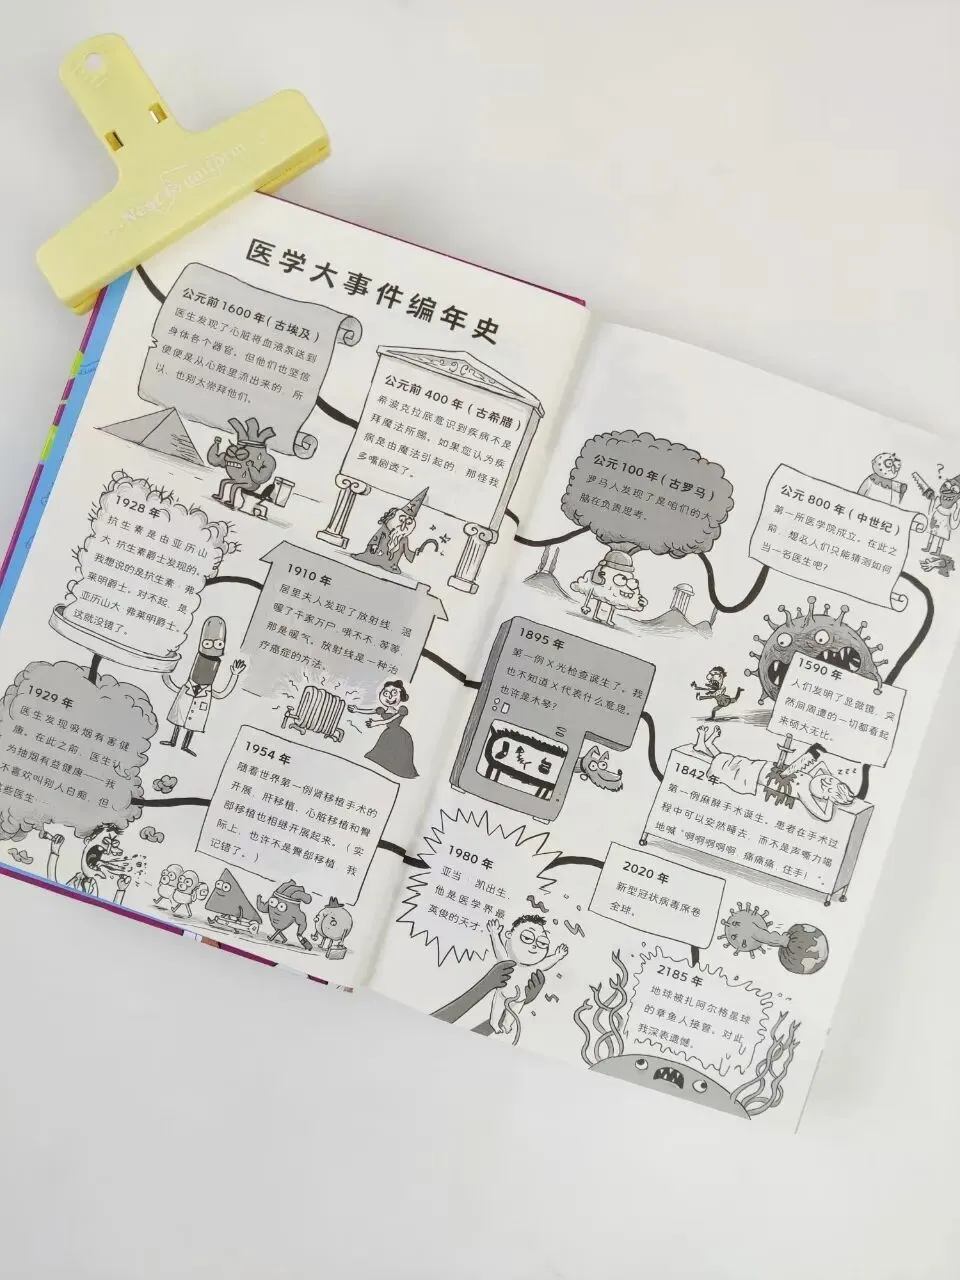 医学大事件编年史
公元前1600年(古埃及)
医生发现了心脏将血液泵送到
身体各个器官。但他们也坚信
便便是从心脏里流出来的,所
以,也别太崇拜他们。
公元前400年(古希腊)
希波克拉底意识到疾病不是
拜魔法所赐。如果您认为疾
病是由魔法引起的,那怪我
多嘴剧透了。
公元100年(古罗马)
罗马人发现了是咱们的大
脑在负责思考。
公元800年(中世纪)
第一所医学院成立。在此之
前,想必人们只能猜测如何
当一名医生吧?
1590年
人们发明了显微镜,突
然间周遭的一切都看起
来硕大无比。
1842年
第一例麻醉手术诞生。患者在手术过
程中可以安然睡去,而不是声嘶力竭
地喊“啊啊啊啊啊,痛痛痛,住手!”。
zzz
1895年
第一例X光检查诞生了。我
也不知道X代表什么意思。
也许是木琴?
1910年
居里夫人发现了放射线,温
暖了千家万户。哦不不,等等,
那是暖气。放射线是一种治
疗癌症的方法。
1928年
抗生素是由亚历山
大·抗生素爵士发现的。
我想说的是抗生素·弗
莱明爵士。对不起,是
亚历山大·弗莱明爵士。
这就没错了。
1929年
医生发现吸烟有害健
康。在此之前,医生认
为抽烟有益健康——我
不喜欢叫别人白痴,但
些医生
1954年
随着世界第一例肾移植手术的
开展,肝移植、心脏移植和臀
部移植也相继开展起来。(实
际上,也许不是臀部移植,我
记错了。)
1980年
亚当·凯出生,
他是医学界最
英俊的天才。
2020年
新型冠状病毒席卷
全球。
2185年
地球被扎阿尔格星球
的章鱼人接管。对此,
我深表遗憾。